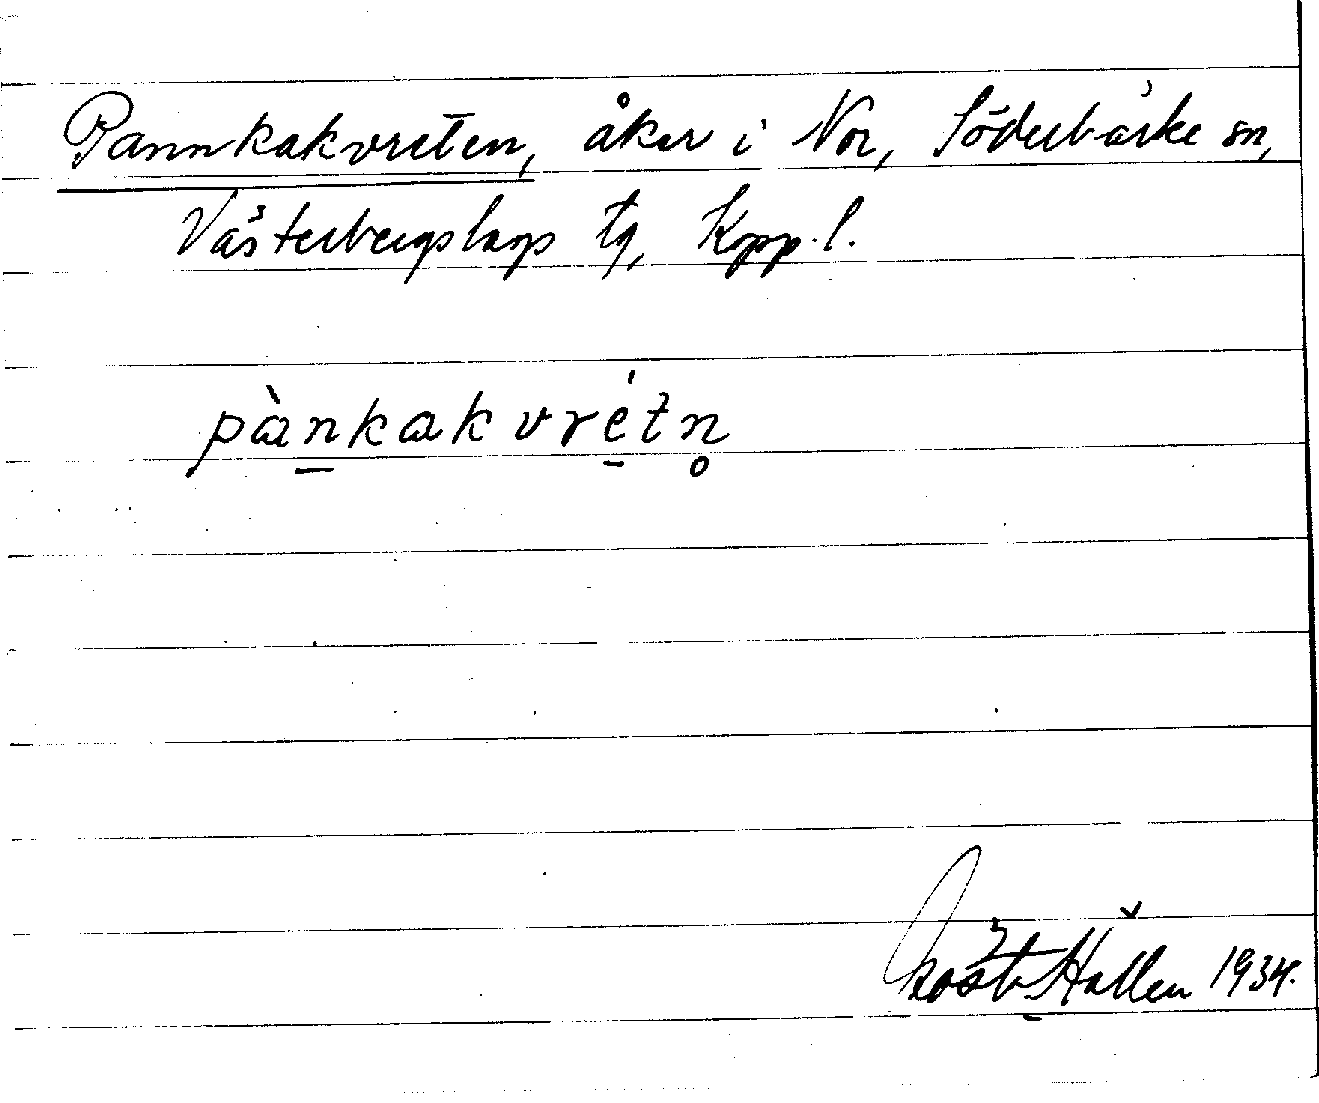 Pannkakvreten, åker i Nor, Söderbärke sn,
Västerbergslags tg, Kpp.l.
pànkakvrétn̥
Hållén 1934.